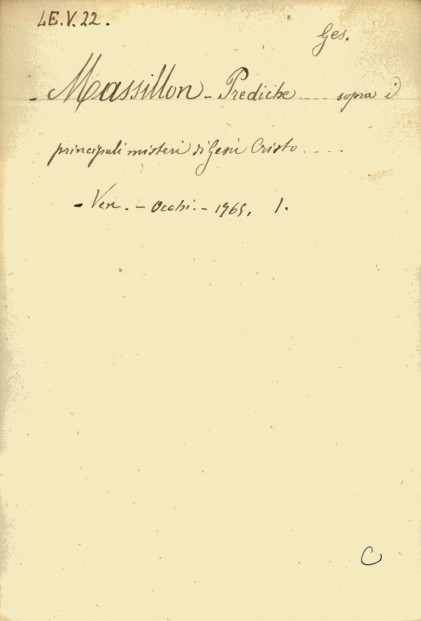 4E.V.22.
Ges.
- Massillon - Prediche .... sopra i
principali misteri di Gesù Cristo ....
- Ven. - Occhi. - 1765. 1.
C